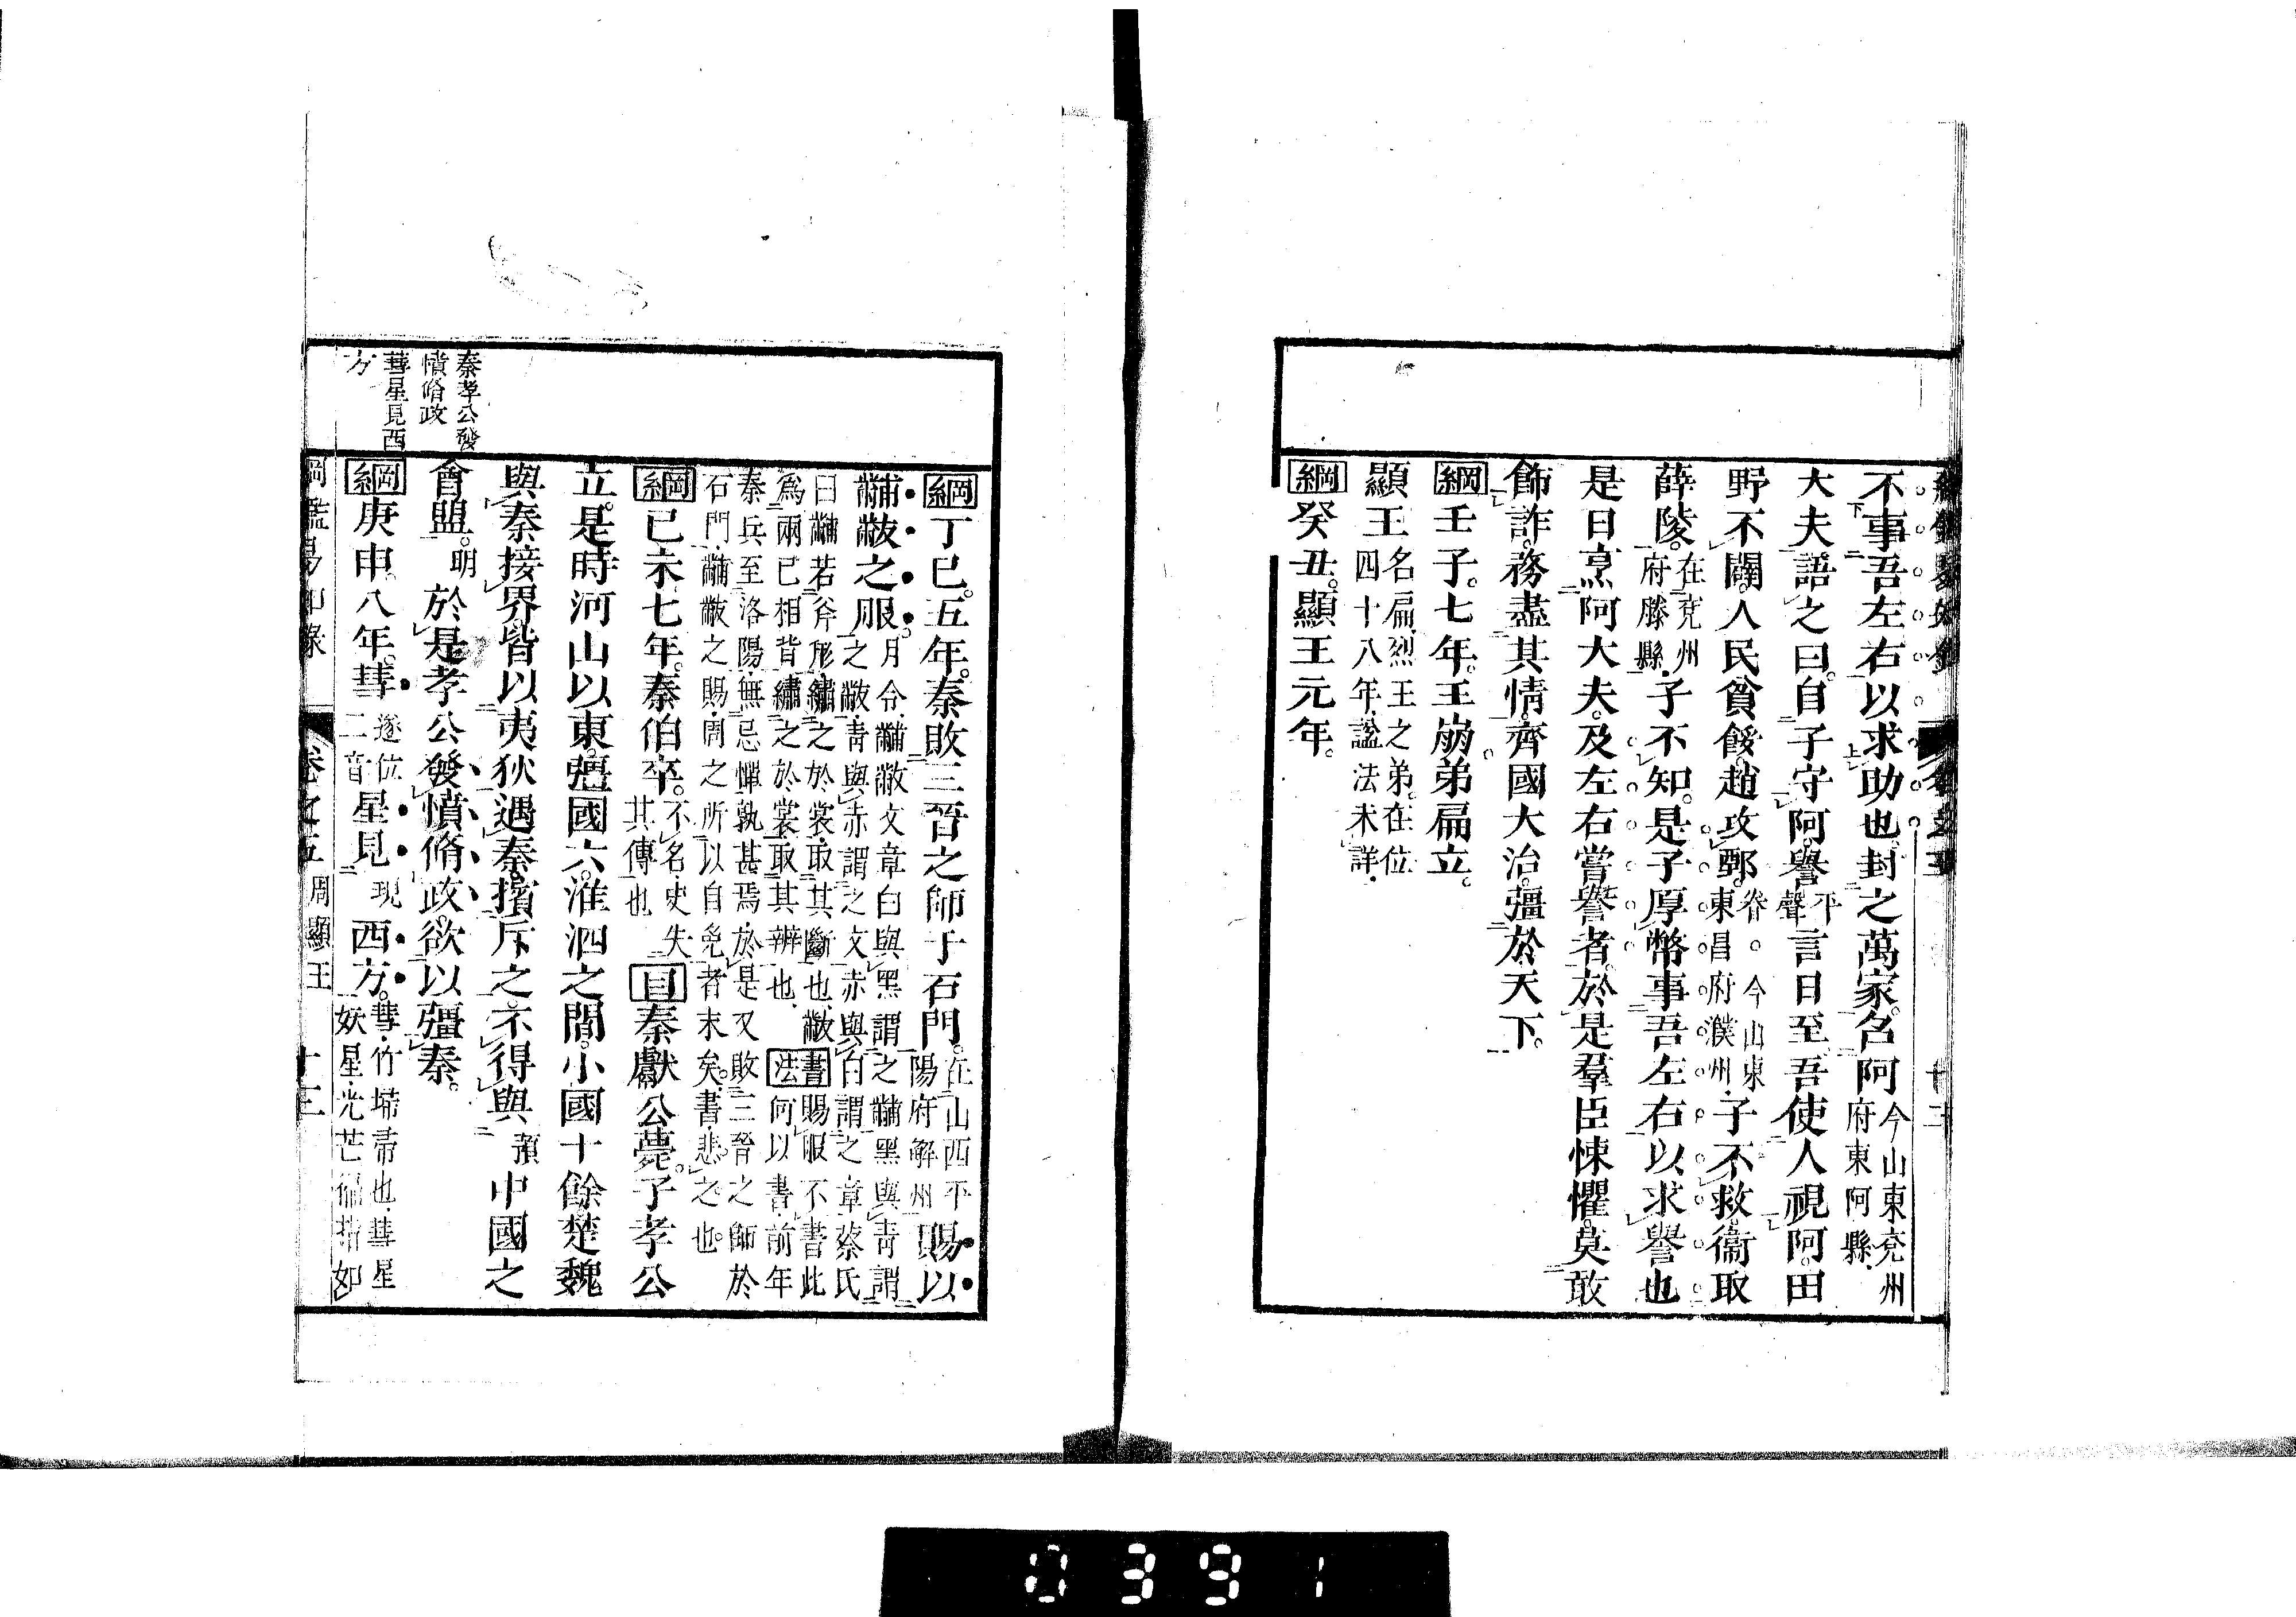 不事吾左右以求助也封之萬家。召阿今山東兗州府東阿縣
大夫語之曰。自子守阿譽平聲言日至吾使人視阿。田
野不闢。人民貧餒。趙攻鄄卷。今山東東昌府濮州子不救。衞取
薛陵。在兗州府滕縣子不知。是子厚幣事吾左右以求譽也
是日烹阿大夫。及左右嘗譽者。於是羣臣悚懼。莫敢
飾詐。務盡其情。齊國大治。彊於天下。
綱壬子。七年。王崩弟扁立。
顯王名扁。烈王之弟。在位四十八年。謚法未詳。
綱癸丑。顯王元年。
綱丁巳。五年。秦敗三晉之師于石門。在山西平陽府解州賜以
黼黻之服。月令。黼黻文章。白與黑謂之黼。黑與青謂
之黻。青與赤謂之文。赤與白謂之章。蔡氏
曰黼若斧形。繡之於裳。取其斷也。黻
爲兩已相背。繡之於裳。取其辨也。
書法賜服不書此何以書。前年
秦兵至洛陽。無忌憚孰甚焉。於是又敗三晉之師於
石門。黼黻之賜。周之所以自免者末矣。書。悲之也。
綱已未。七年。秦伯卒。不名史失其傳也目秦獻公薨。子孝公
立。是時河山以東。彊國六。淮泗之間。小國十餘。楚魏
與秦接界。皆以夷狄遇秦。擯斥之。不得與預中國之
會盟。明於是孝公發憤脩政。欲以彊秦。
綱庚申。八年。彗遂位二音星見現西方。彗。竹埽帚也。彗星妖星。光芒偏指如
秦孝公發
憤脩政
彗星見西
方
卷之五 周顯王 十三
0391